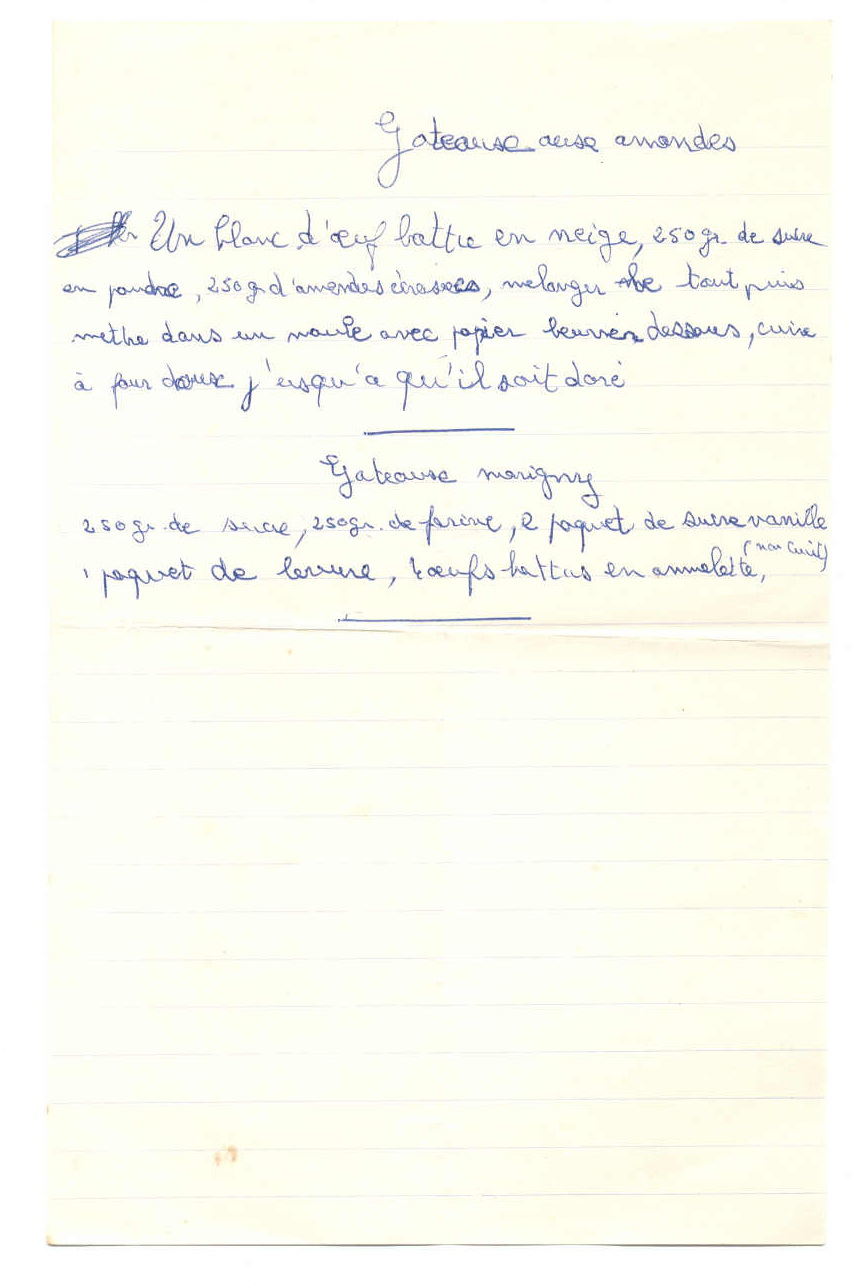 Gateause ause amandes
Un blanc d'œuf battre en neige, 250 gr. de sucre
en poudre, 250 gr d'amendes écrasées, melanger le tout puis
methe dans un moule avec papier beurrer dessous, cuire
à four douse j'usqu'a qu'il soit doré
Gateause marigny
250 gr. de sucre, 250 gr. de farine, 2 paquet de sucre vanille
1 paquet de levure, œufs battus en ammelette, (non cuit)